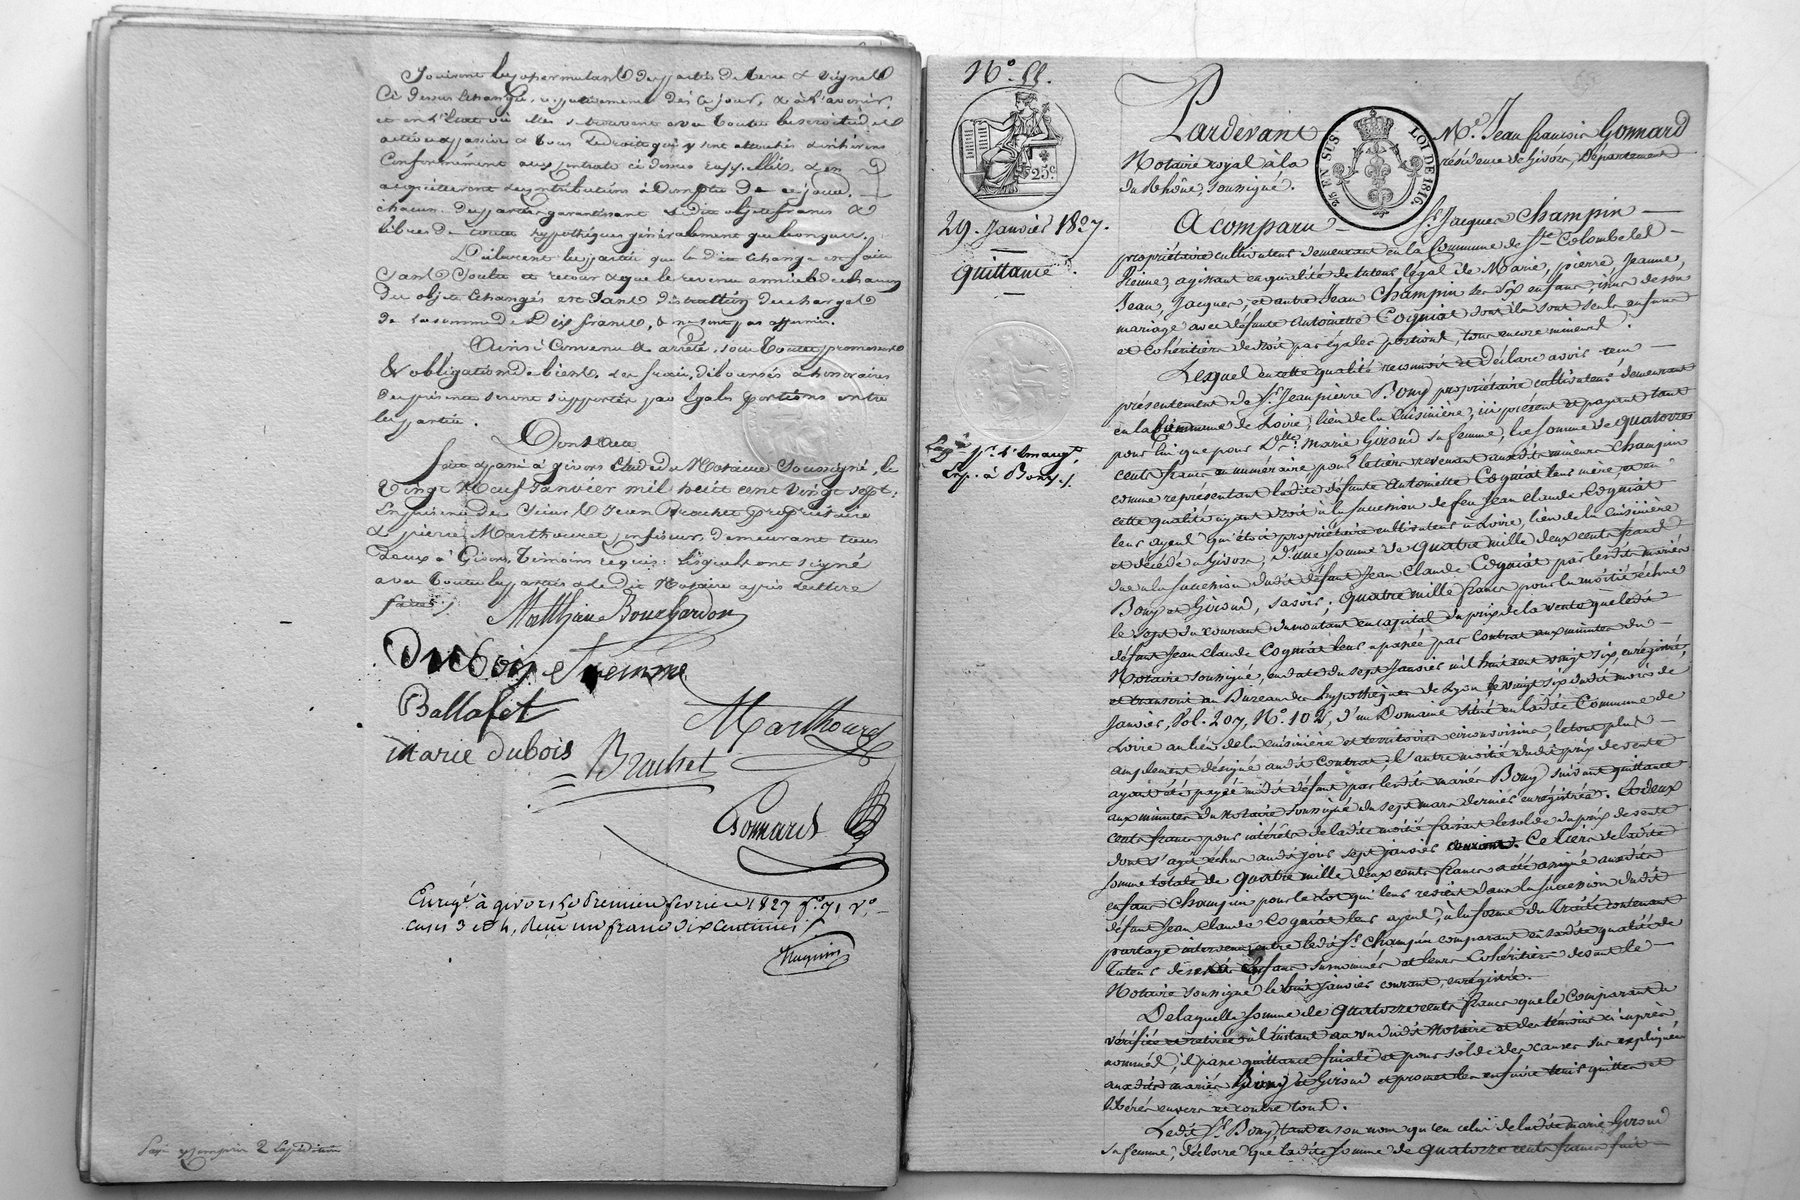 Jouiront les copermutants des parties de terre & vigne
Ci dessus échangés, respectivement dès ce jour, & à l'avenir,
et en l'état où elles se trouvent avec toutes leurs servitudes
actives, passives & tous les droits qui y sont attachés & inhérens
Conformément aux contrats ci dessus & en
acquitteront les contributions à compter de ce jour,
chacun des parties garantissant lesdits objets francs &
libres de toutes hypothèques généralement quelconques.
Déclarent les parties que le dit échange est fait
sans soulte ni retour & que le revenu annuel de chacun
des objets échangés est sans distraction des charges
de la somme de Dix francs, & ne sont pas affermés.
Ainsi Convenu & arrêté, sous toutes promesses
& obligations de biens. Les frais, déboursés & honoraires
des présentes seront supportés par égales portions entre
les parties.
Dont acte
fait & passé à givors Etude du Notaire Soussigné, le
vingt Neuf Janvier mil huit cent vingt sept,
En présence des Sieurs Jean Brachet propriétaire
& pierre Marthouret, demeurant tous
deux à Givors, témoins requis: Lesquels ont signé
avec toutes les parties & le dit Notaire après lecture
faite./.
Matthieu Bouchardon
Dubois femme
Ballofet
Marthouret
marie dubois
Brachet
Gonnard
Enregé à givors le Premier février 1827 fo. 71 Vo.
cases 3 et 4, Reçu un franc dix centimes
No. 55.
25c.
29. Janvier 1827.
quittance.
Exp. à Bony./.
Pardevant Me. Jean françois Gonnard
25 EN SUS LOI DE 1816.
Notaire royal à la résidence de Givors, Département
du Rhône, soussigné.
A comparu Sr. Jacques Champin
propriétaire cultivateur demeurant en la Commune de Ste. Colombe lès
Vienne, agissant en qualité de tuteur légal de Marie, pierre, Jeanne,
Jean, Jacques, et autre Jean Champin ses six enfans, issus de son
mariage avec défunte Antoinette Cogniat dont ils sont seuls enfans
et Cohéritiers de droit par égales portions, tous encore mineurs.
Lequel en cette qualité reconnoit et déclare avoir reçu
présentement de Sr. Jean pierre Bony propriétaire cultivateur demeurant
en la Commune de Loire, lieu de la Cuisinière, ici présent et payant tant
pour lui que pour Dlle. Marie Giroud sa femme, la somme de quatorze
cents francs en numéraire pour le tiers revenant auxdits mineurs Champin
comme représentant ladite défunte Antoinette Cogniat leur mère, et en
cette qualité ayant droit à la succession de feu Jean Claude Cogniat
leur ayeul qui étoit propriétaire cultivateur à Loire, lieu de la Cuisinière
et décédé à Givors, d'une somme de quatre mille deux cents francs
due à la succession dudit défunt Jean Claude Cogniat par lesdits mariés
Bony et Giroud, savoir; quatre mille francs pour la moitié échue
le sept du courant du montant en capital du prix de la vente que ledit
défunt Jean Claude Cogniat leur a passée par contrat aux minutes du
Notaire soussigné, en date du sept Janvier mil huit cent vingt six, enregistré,
et transcrit au Bureau des hypothèques de Lyon le vingt six dudit mois de
Janvier, Vol. 207, No. 102, d'un Domaine situé en ladite Commune de
Loire au lieu de la Cuisinière et territoires circonvoisins, le tout plus
amplement désigné audit contrat, l'autre moitié dudit prix de vente
ayant été payée audit défunt par lesdits mariés Bony suivant quittance
aux minutes du Notaire soussigné du sept mars dernier enregistrée. Et deux
cents francs pour intérêts de ladite moitié faisant le solde du prix de vente
dont s'agit échus audit jour sept janvier courant. Ce Tiers de ladite
somme totale de quatre mille deux cents francs a été assigné auxdits
enfans Champin pour le Lot qui leur revient dans la succession dudit
défunt Jean Claude Cogniat leur ayeul, à la forme du Traité contenant
partage intervenu entre ledit Sr. Champin comparant en sadite qualité de
Tuteur de ses enfans surnommés et leurs Cohéritiers devant le
Notaire soussigné le huit janvier courant, enregistré.
De laquelle somme de quatorze cents francs que le Comparant a
vérifiée et retirée à l'instant au vu dudit Notaire et des témoins ci après
nommés, il passe quittance finale et pour solde des causes sus expliquées
auxdits mariés Bony et Giroud et promet les en faire tenir quittes et
libérés envers et contre tous.
Ledit Sr. Bony, tant en son nom qu'en celui de ladite marie Giroud
sa femme, déclare que ladite somme de quatorze cents francs fait